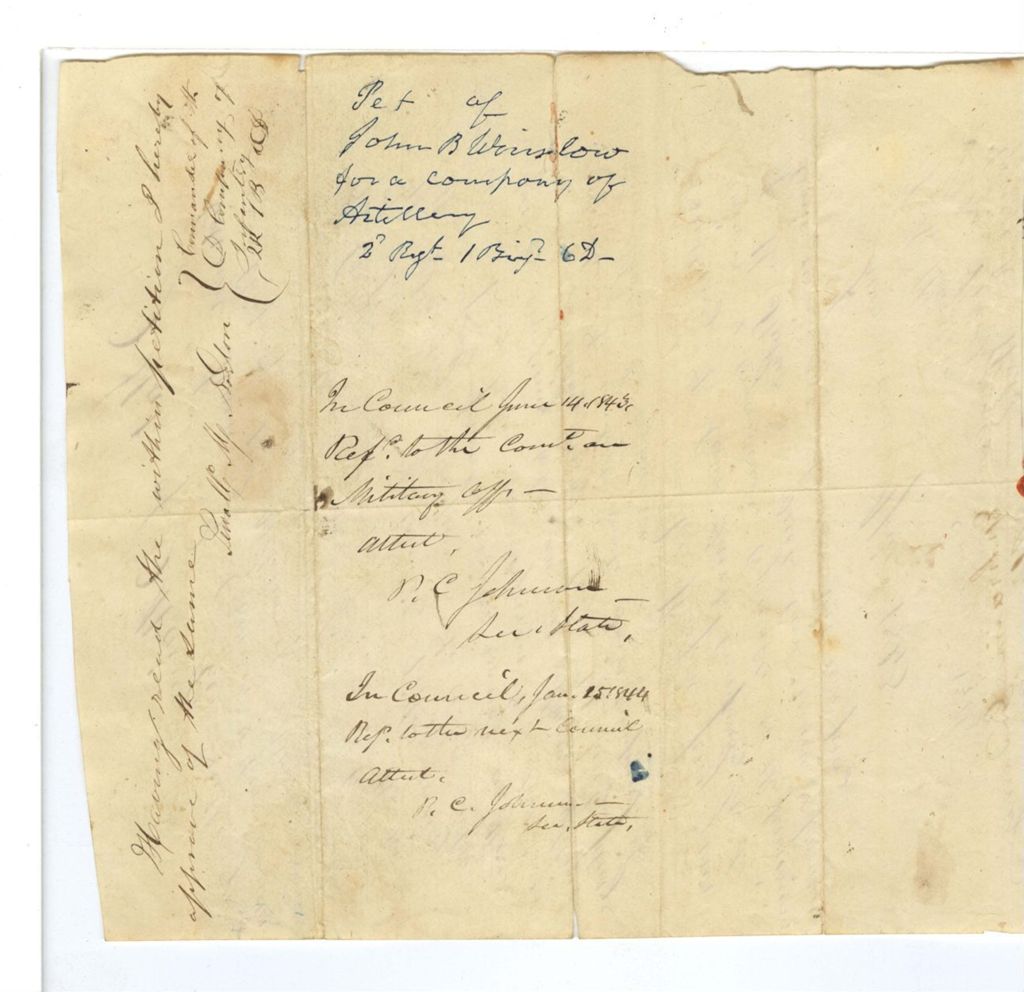 Pet of
John B Winslow
for a company of
Artillery
2d Regt 1 Brigd 6 D -
In Council June 14, 1843.
Refd. to the Comee. on
Military Affs -
Attest,
P. C. Johnson
Sec. State,
In Council, Jan. 1844
Refd. to the next Council
Attest.
P. C. Johnson
Sec. State,
Having read the within petition I hereby
approve of the same
M. Norton
Commander of th
D Company of
Infantry
2d R 1 B 6 D